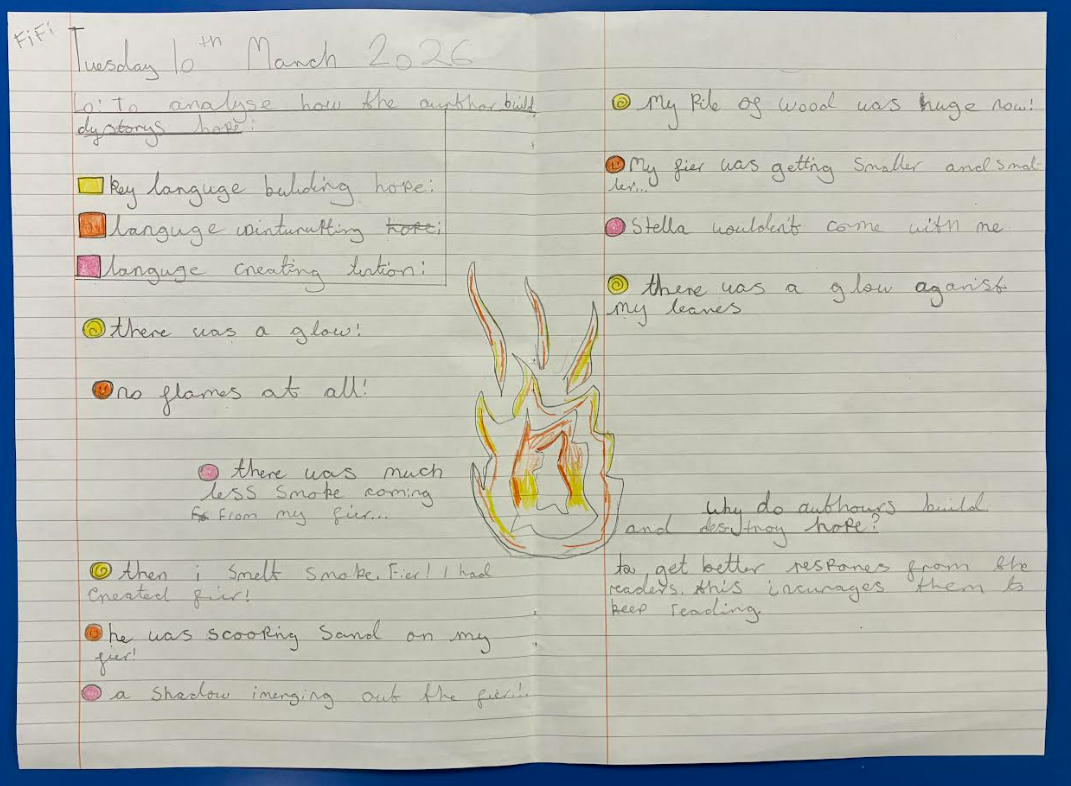 FiFi
Tuesday 10th March 2026
Lo: To analyse how the aupthor build
dystorys hope:
Key languge building hope:
languge winturupting hope:
languge creating tention:
there was a glow!
no flames at all!
there was much
less smoke coming
from my fier...
then i smelt smoke. Fier! I had
Created fier!
he was scooping sand on my
fier!
a shadow imerging out the fier!.
My Pile of wood was huge now!
My fier was getting smaller and smal-
ler...
Stella woulden't come with me
there was a glow aganist
my leaves
why do authours build
and destroy hope?
to get better respones from the
readers. this incurages them to
keep reading.